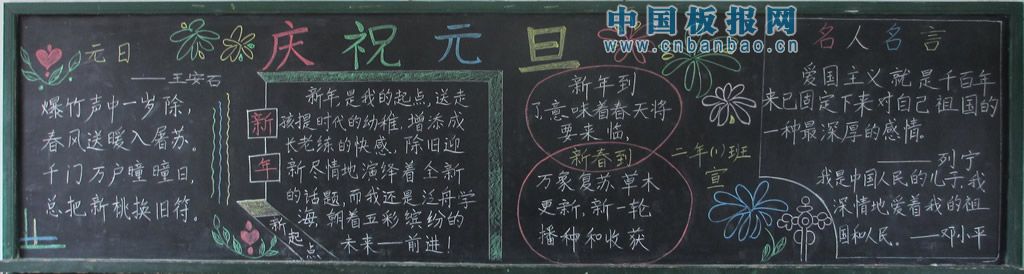 中国板报网
www.cnbanbao.cn
庆祝元旦
元日
——王安石
爆竹声中一岁除,
春风送暖入屠苏。
千门万户曈曈日,
总把新桃换旧符。
新年
新年是我的起点,送走
孩提时代的幼稚,增添成
长老练的快感。除旧迎
新尽情地演绎着全新
的话题,而我还是泛舟学
海,朝着五彩缤纷的
未来——前进!
新起点
新年到
了,意味着春天将
要来临.
新春到
万象复苏,草木
更新,新一轮
播种和收获
二年(1)班
宣
名人名言
爱国主义就是千百年
来已固定下来对自己祖国的
一种最深厚的感情.
——列宁
我是中国人民的儿子,我
深情地爱着我的祖
国和人民。——邓小平